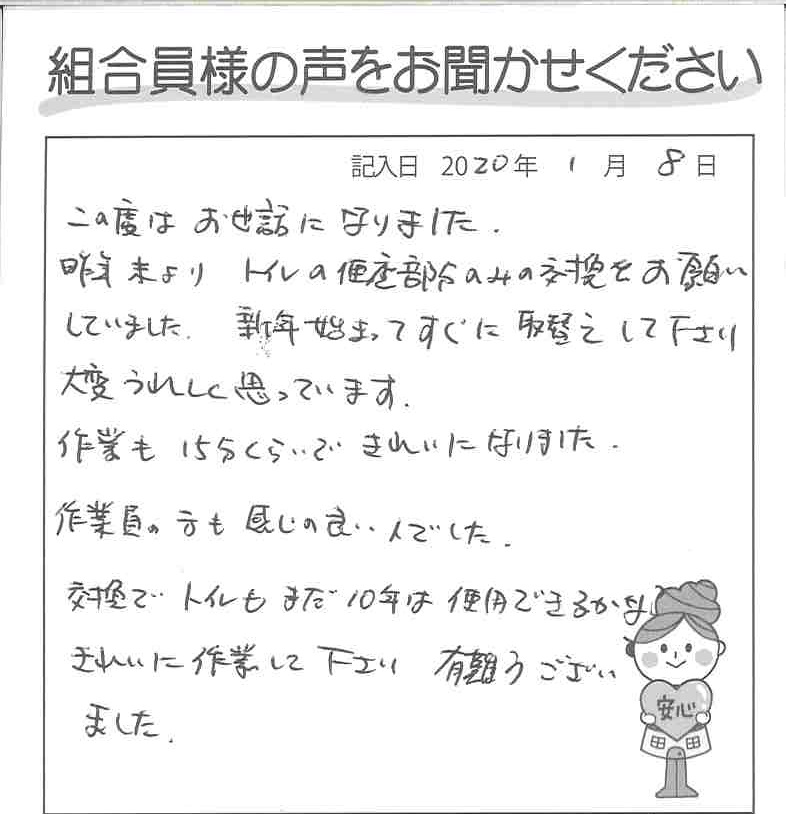 組合員様の声をお聞かせください
記入日 2020年 1月 8日
この度は お世話に なりました.
昨年末より トイレの便座部分のみの交換をお願い
していました. 新年始まってすぐに 取替え して下さり
大変うれしく思っています.
作業も 15分くらいで きれいになりました.
作業員の方も 感じの良い人でした.
交換で トイレも まだ10年は 使用できるかな
きれいに 作業して 下さり 有難うござい
ました.
安心